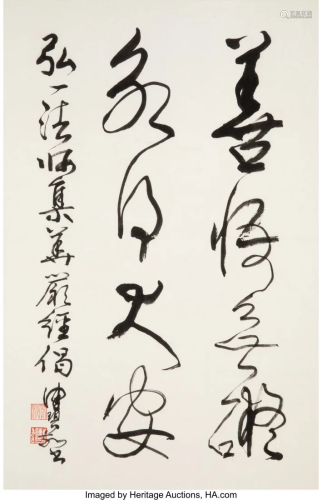 善悟無礙
永得大安
弘一法師集華嚴經偈
Imaged by Heritage Auctions, HA.com